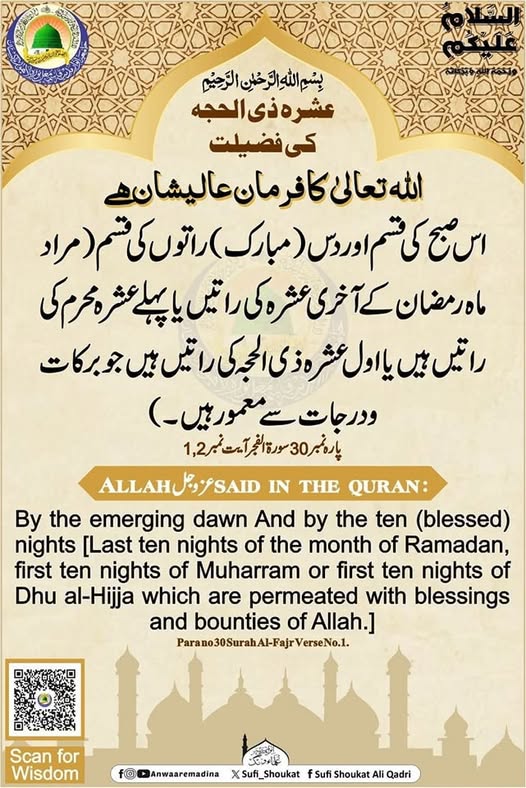 السَّلَامُ
عَلَيْكُم
وَرَحْمَةُ اللهِ وَبَرَكَاتُهُ
بِسْمِ اللهِ الرَّحْمٰنِ الرَّحِيْمِ
عشرہ ذی الحجہ
کی فضیلت
اللہ تعالیٰ کا فرمان عالیشان ہے
اس صبح کی قسم اور دس (مبارک) راتوں کی قسم (مراد
ماہ رمضان کے آخری عشرہ کی راتیں یا پہلے عشرہ محرم کی
راتیں ہیں یا اول عشرہ ذی الحجہ کی راتیں ہیں جو برکات
و درجات سے معمور ہیں۔)
پارہ نمبر 30 سورۃ الفجر آیت نمبر 1,2
ALLAH عزوجل SAID IN THE QURAN:
By the emerging dawn And by the ten (blessed)
nights [Last ten nights of the month of Ramadan,
first ten nights of Muharram or first ten nights of
Dhu al-Hijja which are permeated with blessings
and bounties of Allah.]
Para no 30 Surah Al-Fajr Verse No.1.
Scan for
Wisdom
Anwaaremadina Sufi_Shoukat Sufi Shoukat Ali Qadri